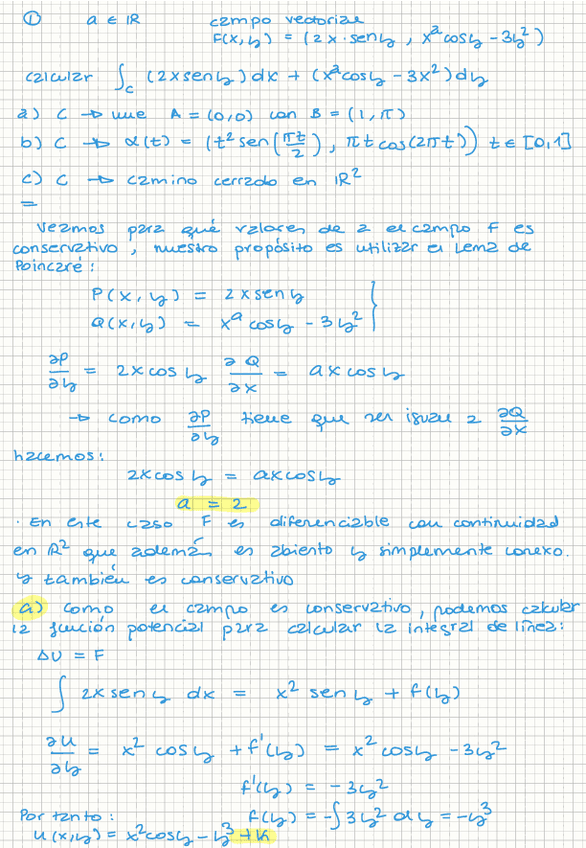 ① a ∈ ℝ campo vectorial
F(x,y) = (2x·sen y, x^a cos y - 3y²)
calcular ∫_C (2x sen y)dx + (x^a cos y - 3x²)dy
a) C → une A = (0,0) con B = (1,π)
b) C → α(t) = (t² sen(πt/2), πt cos(2πt)) t ∈ [0,1]
c) C → camino cerrado en ℝ²
=
Veamos para qué valores de a el campo F es
conservativo, nuestro propósito es utilizar el Lema de
Poincaré:
P(x,y) = 2x sen y
Q(x,y) = x^a cos y - 3y² }
∂P/∂y = 2x cos y ∂Q/∂x = ax cos y
→ como ∂P/∂y tiene que ser igual a ∂Q/∂x
hacemos:
2x cos y = ax cos y
a = 2
· En este caso F es diferenciable con continuidad
en ℝ² que además es abierto y simplemente conexo.
y también es conservativo
a) Como el campo es conservativo, podemos calcular
la función potencial para calcular la integral de línea:
ΔU = F
∫ 2x sen y dx = x² sen y + f(y)
∂u/∂y = x² cos y + f'(y) = x² cos y - 3y²
f'(y) = -3y²
Por tanto: f(y) = -∫3y² dy = -y³
u(x,y) = x² cos y - y³ + K